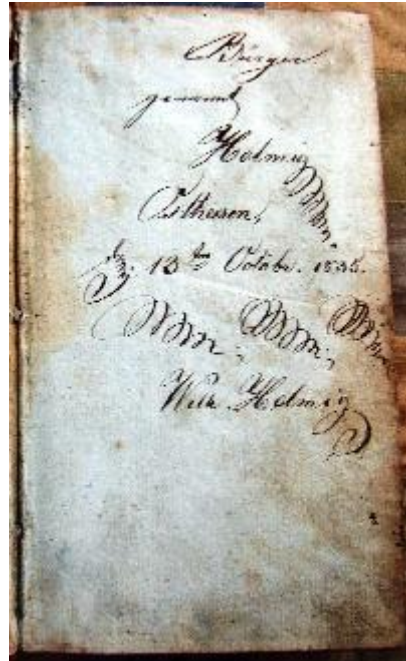 Bürger
genannt
Helmig
Osthusen,
d. 13ten Octobr. 1835.
Wilh. Helmig